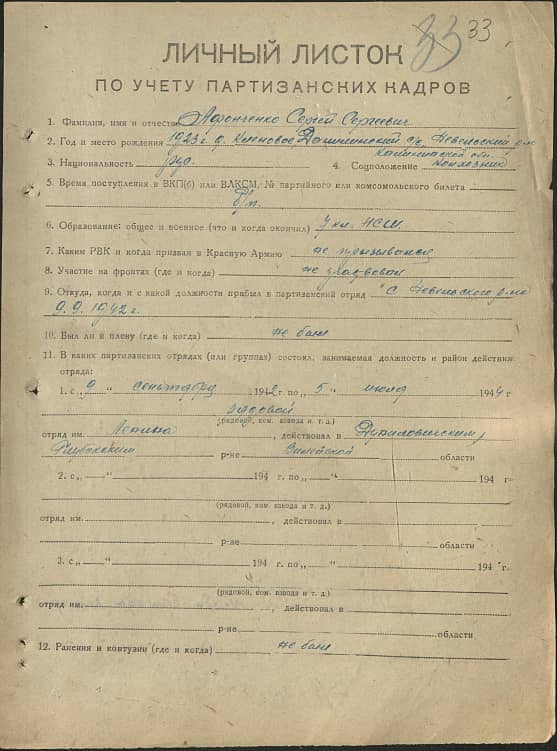 33 33
ЛИЧНЫЙ ЛИСТОК
ПО УЧЕТУ ПАРТИЗАНСКИХ КАДРОВ
1. Фамилия, имя и отчество Афонченко Сергей Сергеевич
2. Год и место рождения 1923 г. д. Кленовое, с/с, Невельский р-н
Калининской обл.
3. Национальность рус. 4. Соцположение колхозник
5. Время поступления в ВКП(б) или ВЛКСМ, № партийного или комсомольского билета
б/п.
6. Образование: общее и военное (что и когда окончил) 7 кл. НСШ.
7. Каким РВК и когда призван в Красную Армию не призывался
8. Участие на фронтах (где и когда) не участвовал
9. Откуда, когда и с какой должности прибыл в партизанский отряд С Невельского р-на
9.9.1942 г.
10. Был ли в плену (где и когда) не был
11. В каких партизанских отрядах (или группах) состоял, занимаемая должность и район действия
отряда:
1. с „ 9 “ сентября 1942 г. по „ 5 “ июля 1944 г
рядовой
(рядовой, ком. взвода и т. д.)
отряд им. Ленина, действовал в Дуниловичским,
Глубокским р-не Вилейской области
2. с „ “ 194 г. по „ “ 194 г.
(рядовой, ком. взвода и т. д.)
отряд им. , действовал в
р-не области
3. с „ “ 194 г. по „ “ 194 г.
(рядовой, ком. взвода и т. д.)
отряд им. , действовал в
р-не области
12. Ранения и контузии (где и когда) не был